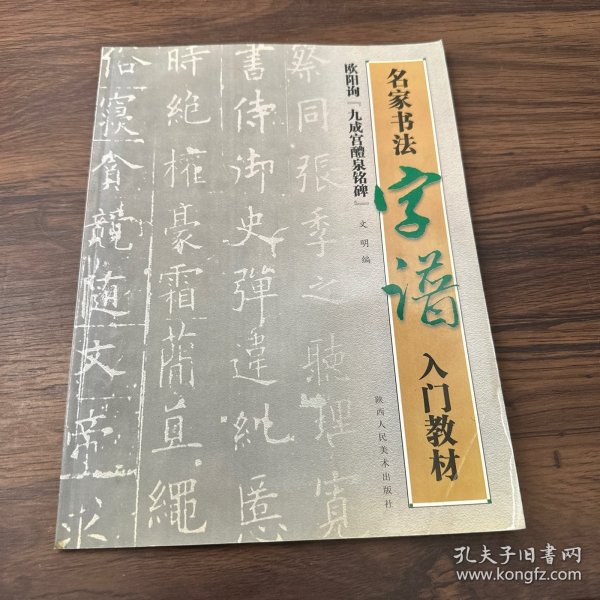 名家书法
字谱
入门教材
欧阳询『九成宫醴泉铭碑』
文明 编
陕西人民美术出版社
祭同张季之听理宽
书侍御史弹违纠慝
時絶權豪霜簡直繩
俗寝貪競随文帝求
孔夫子旧书网
www.kongfz.com